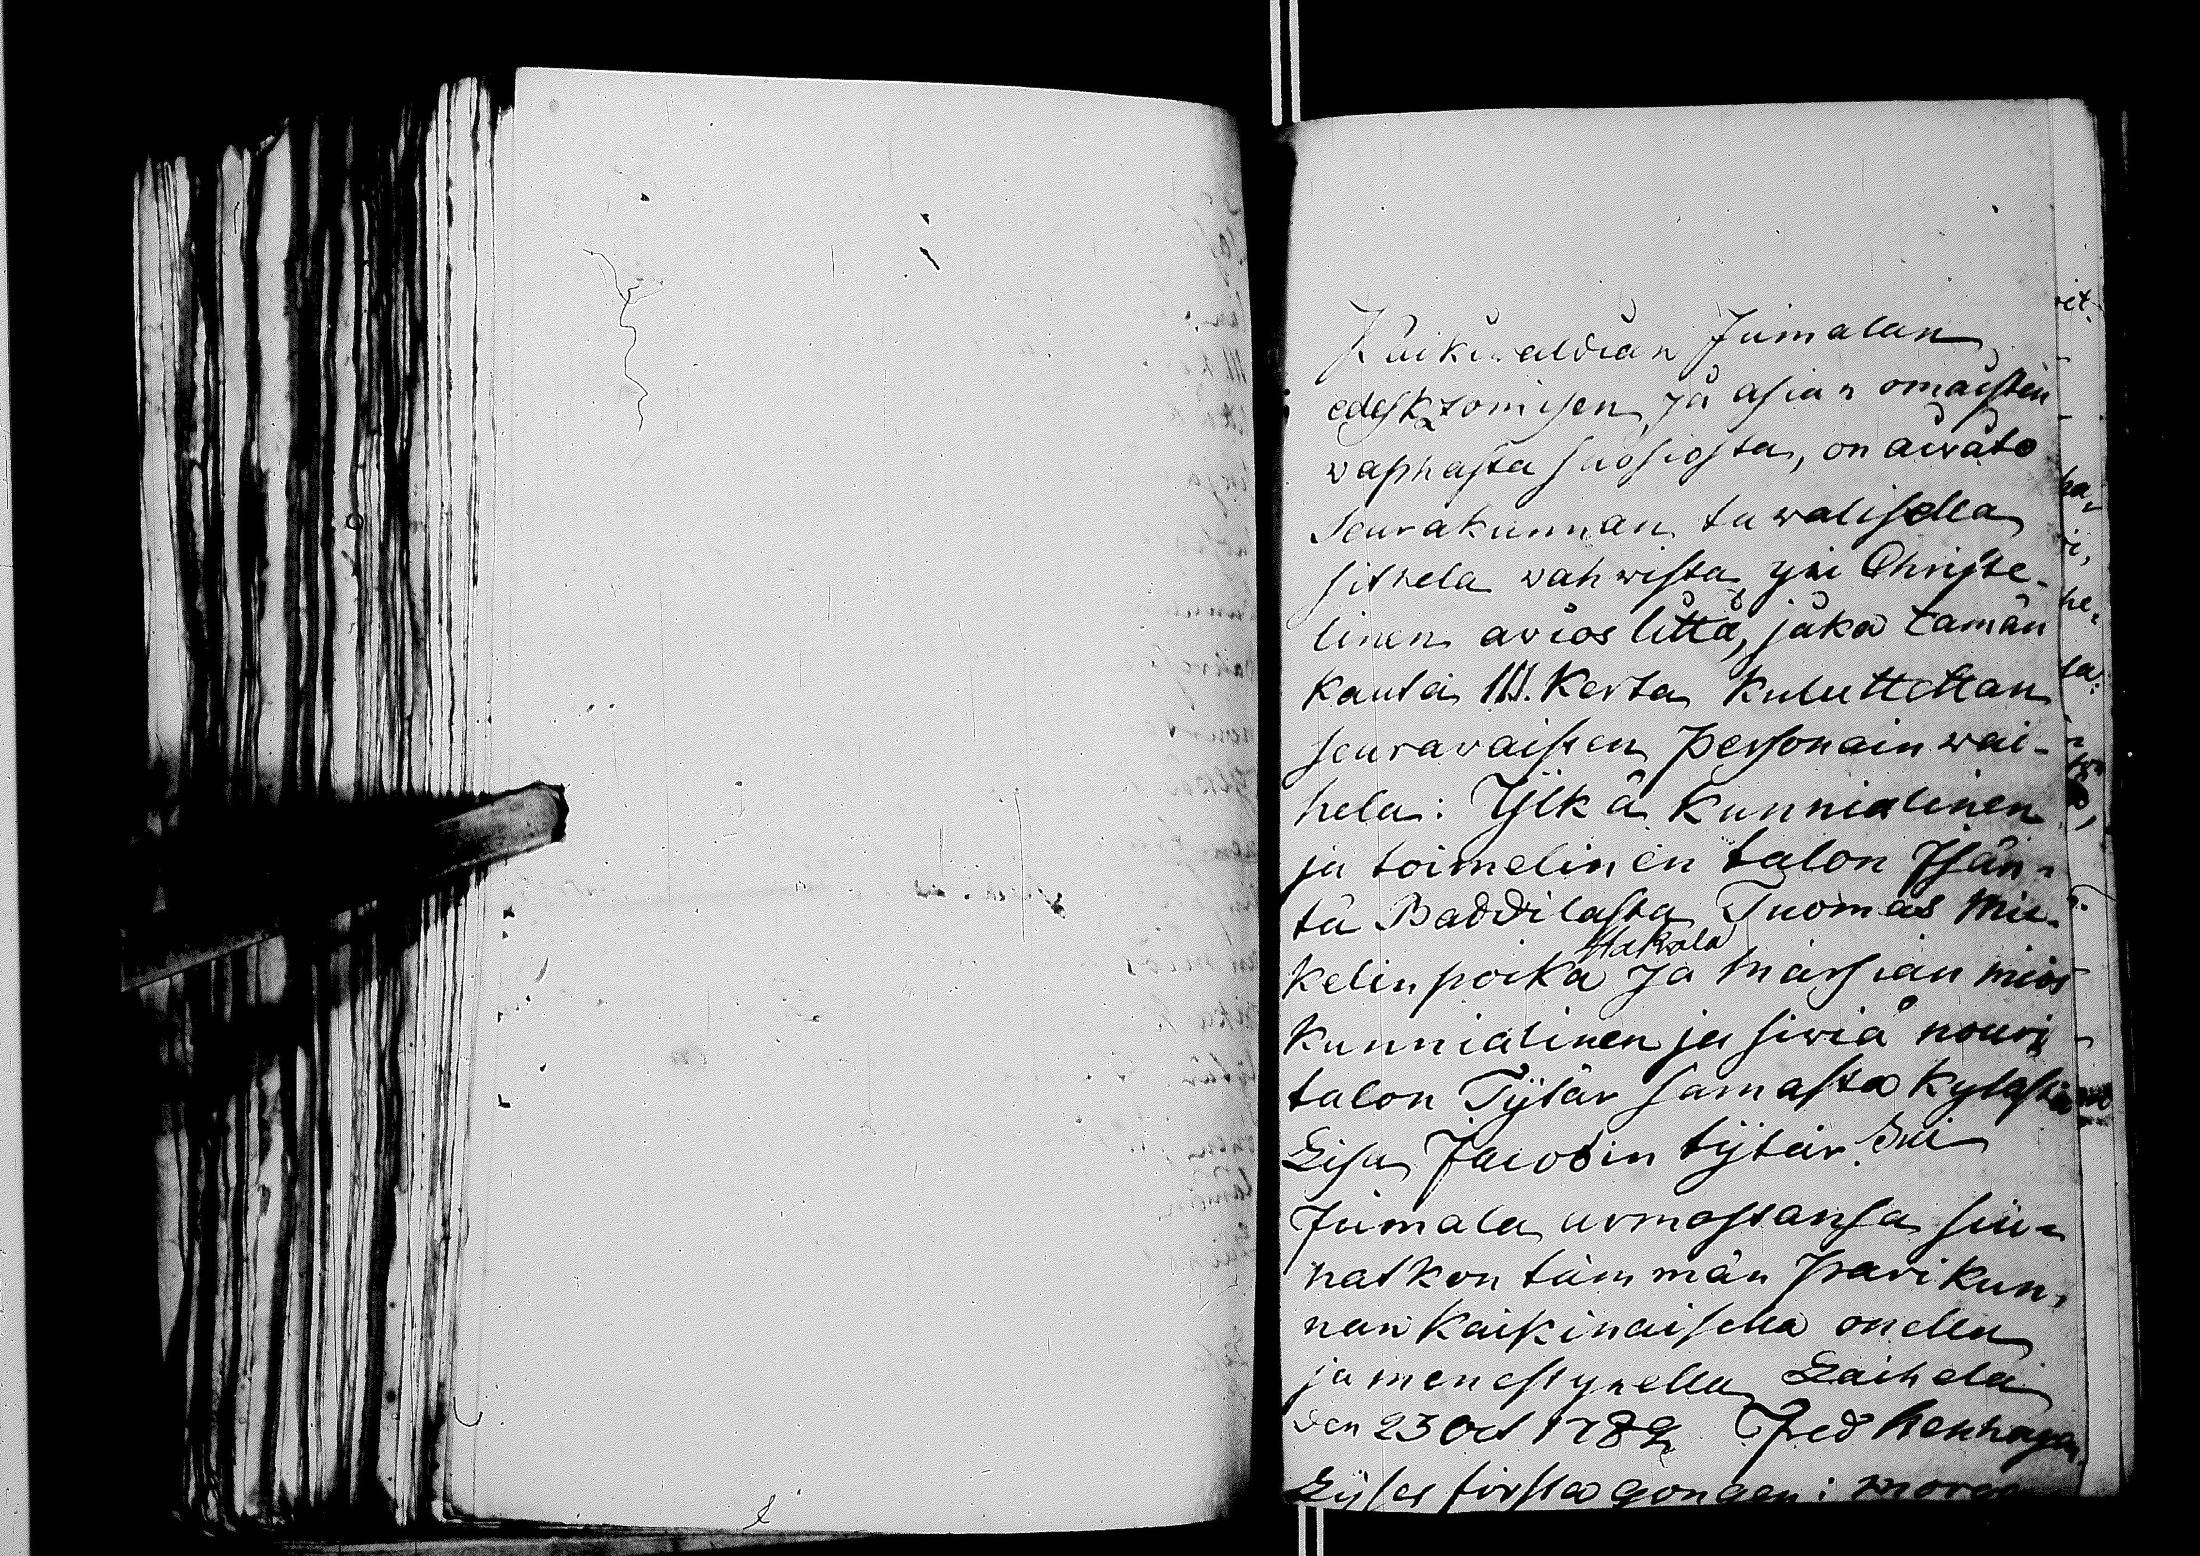 Kaikivaldian Jumalan
edeskatzomisen, ja asian omaisten
vaphasta suosiosta, on aivåto
seurakunnan tawalisella
sitela wahwista yxi Christe-
linen avios litto, joka tämän
kauta III. Kerta kulutettan
seuravaisten personain wai-
hela: Yjlkä kunnialinen
ja toimelinen talon Jsän-
tä Baddilasta Tuomas Mic-
Hakola
kelin poika ja Morsian mios
kunnialinen ja siviä nouri
talon Tÿtär samasta kylästä
Lisa Jacobin tÿtär.
Jumala armossansa siu-
natkon tämmän pari kun-
nan kaikinaisella onella
ja menestyxella Laihela
den 23 Oct 1782 Fred
Lyses första gongen: